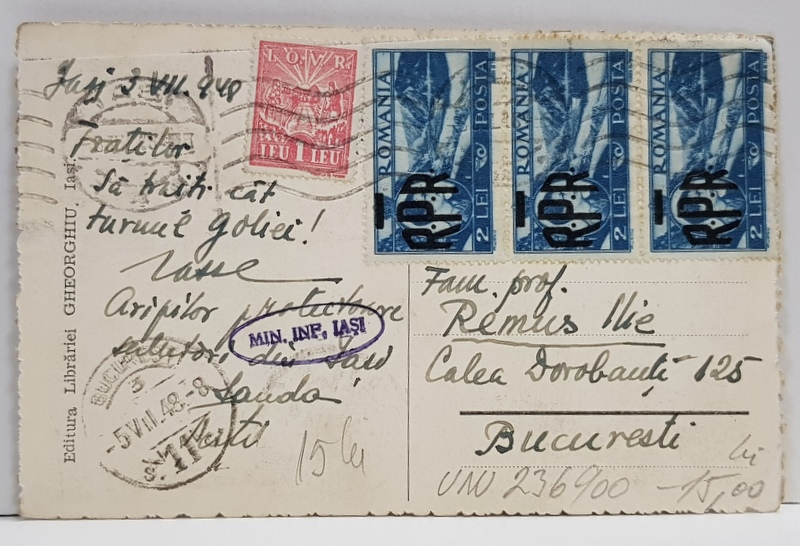 Iași 3 VII. 948
Fraților
Să trăiți cât
turnul Goliei!
Aripilor protectoare
salutări din Iași
Sanda
MIN. INF. IAȘI
BUCUREȘTI
3
-5 VII. 48.-8
15 lei
Editura Librăriei GHEORGHIU, Iași.
I.O.V.R.
LEU 1 LEU
ROMANIA POSTA
2 LEI
R.P.R
ROMANIA POSTA
2 LEI
R.P.R
ROMANIA POSTA
2 LEI
R.P.R
Fam. prof.
Remus Ilie
Calea Dorobanți 125
București
lei
236900 -15,00